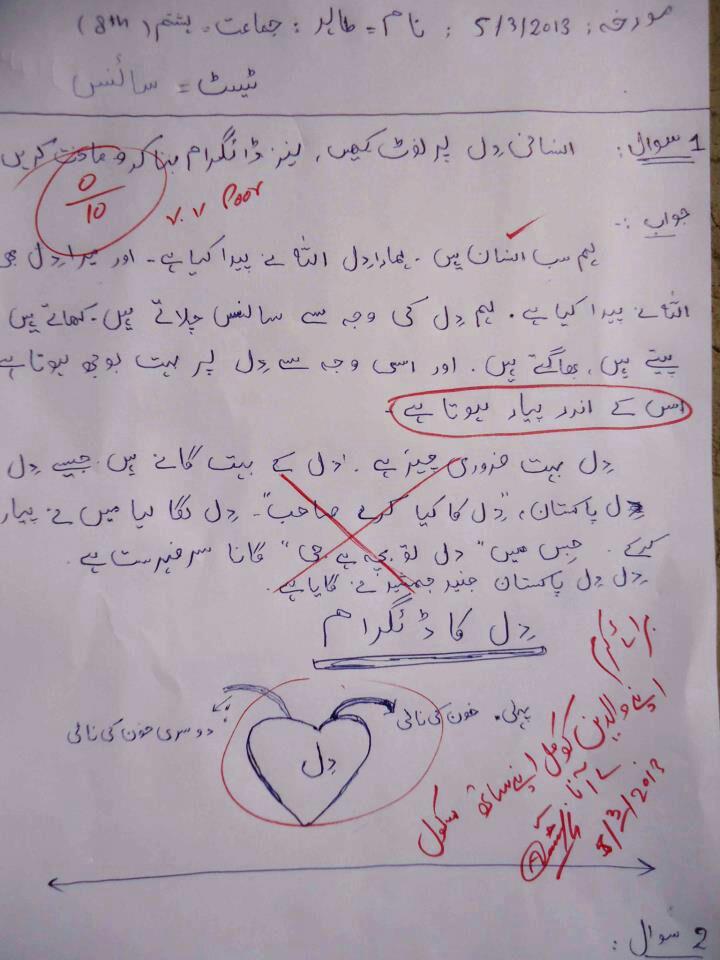 مورخہ: 5/3/2013 : نام = طاہر : جماعت = ہشتم (8th)
ٹیسٹ = سائنس
سوال 1: انسانی دِل پر نوٹ لکھیں، نیز ڈائگرام بنا کر وضاحت کریں
0/10
v.v Poor
جواب :-
ہم سب انسان ہیں۔ ہمارا دِل اللہ نے پیدا کیا ہے۔ اور میرا دِل بھی
اللہ نے پیدا کیا ہے۔ ہم دِل کی وجہ سے سانس چلاتے ہیں۔ کھاتے ہیں
پیتے ہیں، بھاگتے ہیں۔ اور اسی وجہ سے دِل پر بہت بوجھ ہوتا ہے
اس کے اندر پیار ہوتا ہے۔
دِل بہت ضروری چیز ہے۔ دل کے بہت گانے ہیں جیسے دِل
دِل پاکستان، "دِل کا کیا کرے صاحب"۔ دِل لگا لیا میں نے پیار
کرکے۔ جس میں "دل تو بچہ ہے جی" گانا سرفہرست ہے۔
دِل دِل پاکستان جنید جمشید نے گایا ہے۔
دِل کا ڈئگرام
پہلی خون کی نالی
دوسری خون کی نالی
دِل
برائے کرم
اپنے والدین کو کل اپنے ساتھ سکول
لے آنا۔
5/3/2013
سوال 2 :